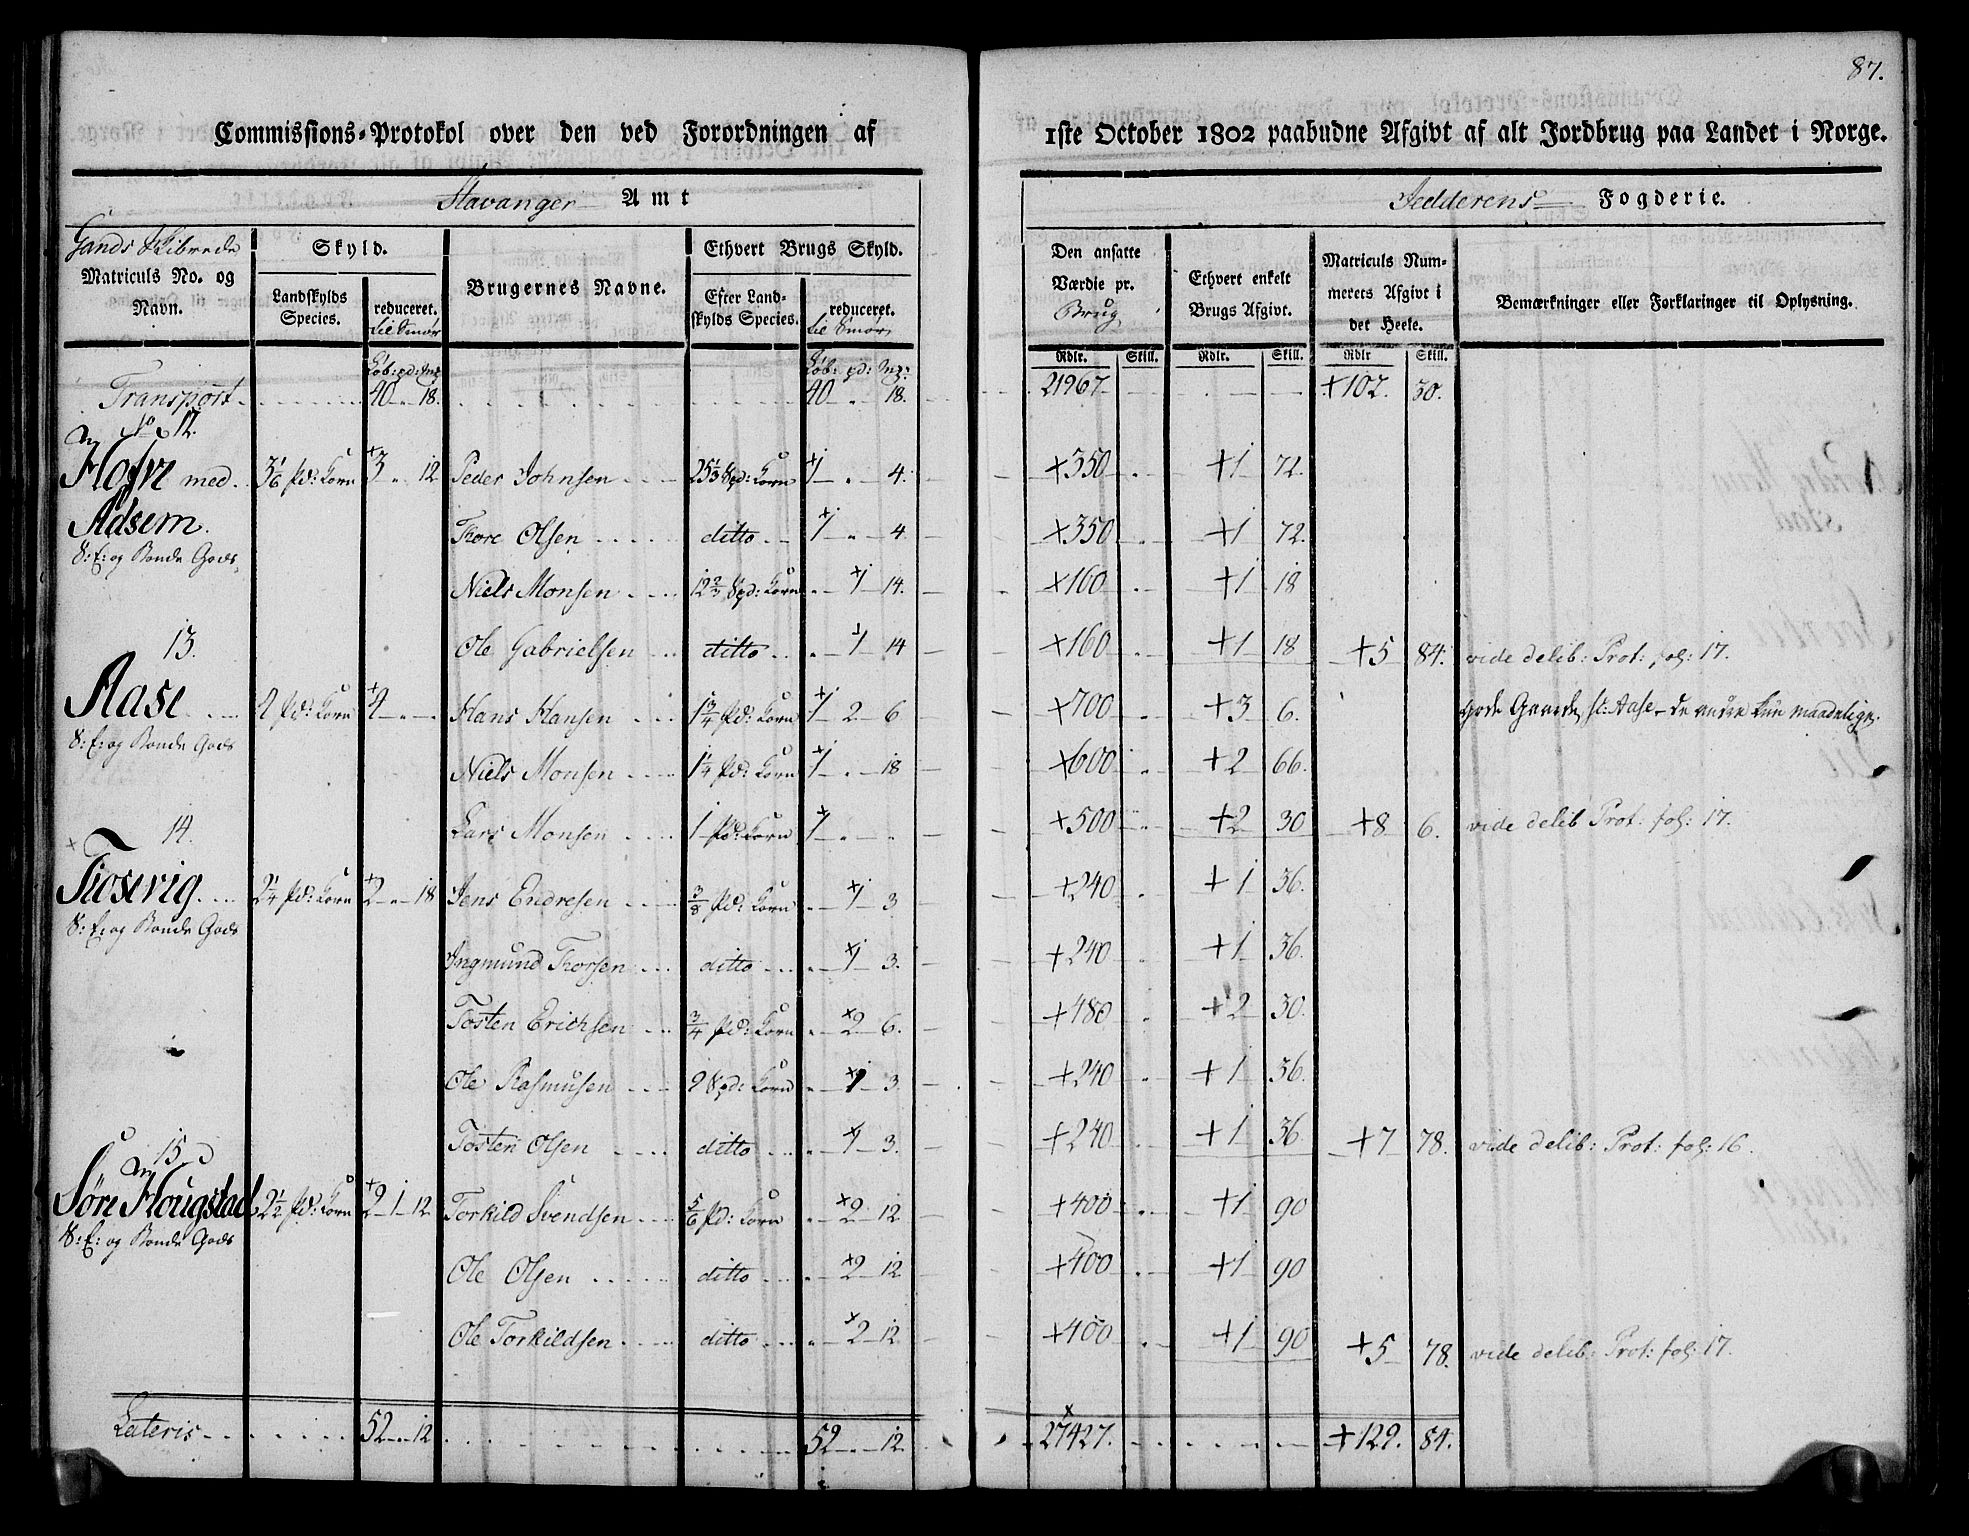 87.
Commissions-Protokol over den ved Forordningen af 1ste October 1802 paabudne Afgivt af alt Jordbrug paa Landet i Norge.
Stavanger Amt Jedderens Fogderie.
Gands Skibrede
Matriculs No. og Navn. | Skyld. | Brugernes Navne. | Ethvert Brugs Skyld. | Den ansatte Værdie pr. Brug | Ethvert enkelt Brugs Afgivt. | Matriculs Nummerets Afgivt i det Heele. | Bemærkninger eller Forklaringer til Oplysning.
Landskylds Species. | reduceret. til Smør | Efter Landskylds Species. | reduceret. til Smør
Løb: pd: Mz | Løb: pd: Mz: | Rdlr. | Skill. | Rdlr. | Skill. | Rdlr | Skill.
Transport 40 " 18. 40 " 18. 21967 +102. 30.
No 12.
Hofve med 3 1/6 pd: Korn +3 " 12 Peder Johnsen 25 1/3 Spd: Korn +1 " 4. +350 " +1 72.
Adsem. Tore Olsen ditto +1 " 4. +350 " +1 72.
S: E: og Bonde Gods
Niels Monsen 12 2/3 Spd: Korn " +1 14. +160 " +1 18
13. Ole Gabrielsen ditto " 1 14 +160 " +1 18 +5 84. vide delib: Prot: fol: 17.
Aase 4 pd: Korn +4 " " Hans Hansen 1 3/4 pd: Korn +1 2 6 +700 " +3 6. gode Gaarde, sc: Aase - de andre kun maadelige.
S: E: og Bonde Gods
Niels Monsen 1 1/4 pd: Korn +1 " 18 +600 " +2 66.
14. Lars Monsen 1 pd: Korn +1 " " +500 " +2 30 +8 6. vide delib Prot: fol: 17.
Tiosevig 2 1/4 pd: Korn +2 " 18 Jens Endresen 3/8 pd: Korn " +1 3 +240 " +1 36.
S: E: og Bonde Gods
Ingmund Thorsen ditto " +1 3. +240 " +1 36.
Tosten Erichsen 3/4 pd: Korn " +2 6. +480 " +2 30.
Ole Rasmusen 9 Spd: Korn " +1 3. +240 " +1 36.
Tosten Olsen ditto " +1 3. +240 " +1 36 +7 78. vide delib: Prot: fol: 16.
15
Søre Hougstad 2 1/2 pd: Korn +2 1 12 Torkild Svendsen 5/6 pd: Korn " +2 12 +400 " +1 90
S: E: og Bonde Gods
Ole Olsen ditto " +2 12 +400 " +1 90
Ole Torkildsen ditto " +2 12 +400 " +1 90 +5 78. vide delib: Prot: fol: 17.
Lateris 52 " 12 52 " 12 27427. +129. 84.